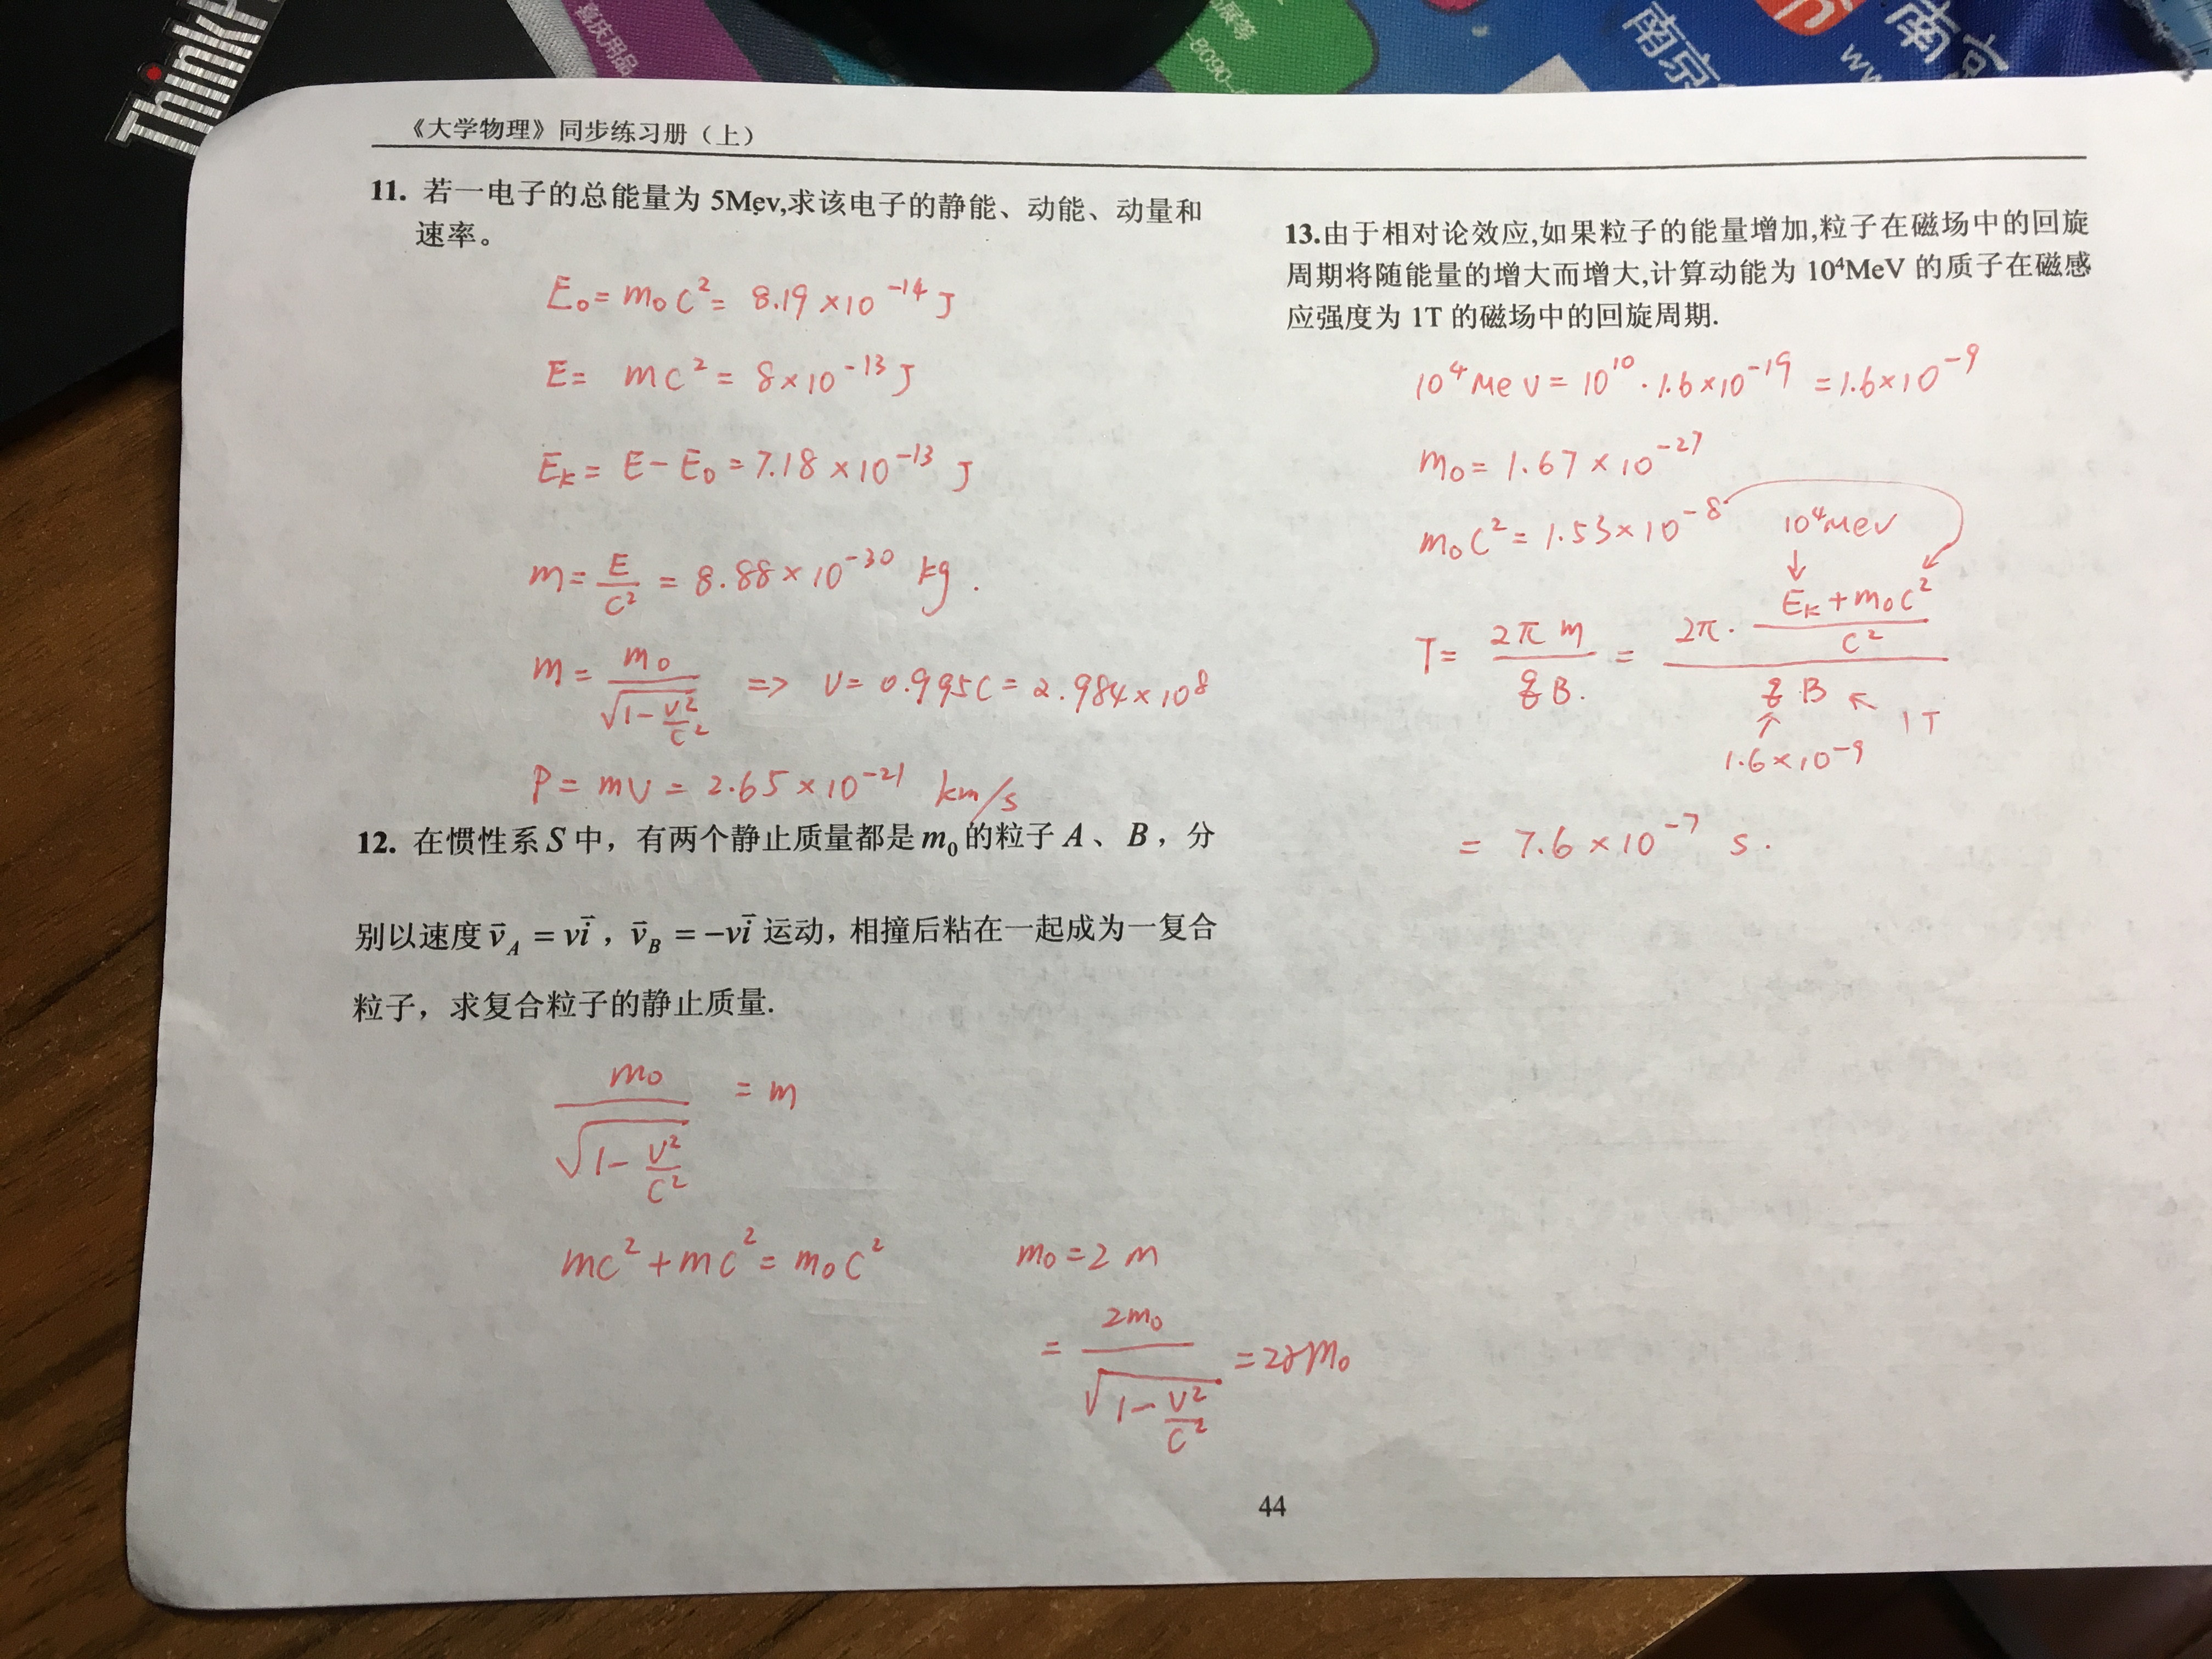 Think
喜庆用品
展等
-8090-
南京
www
南京
《大学物理》同步练习册（上）
11. 若一电子的总能量为 5Mev,求该电子的静能、动能、动量和
速率。
E₀= m₀c²= 8.19×10⁻¹⁴ J
E= mc²= 8×10⁻¹³ J
Eₖ= E-E₀=7.18×10⁻¹³ J
m= E/c² = 8.88×10⁻³⁰ kg.
m= m₀/√(1-v²/c²) => v=0.995c=2.984×10⁸
P= mv = 2.65×10⁻²¹ km/s
12. 在惯性系 S 中，有两个静止质量都是 m₀ 的粒子 A、B，分
别以速度 v̄_A = vī，v̄_B = -vī 运动，相撞后粘在一起成为一复合
粒子，求复合粒子的静止质量.
m₀/√(1-v²/c²) = m
mc²+mc²=m₀c² m₀=2m
= 2m₀/√(1-v²/c²) =2γm₀
13.由于相对论效应,如果粒子的能量增加,粒子在磁场中的回旋
周期将随能量的增大而增大,计算动能为 10⁴MeV 的质子在磁感
应强度为 1T 的磁场中的回旋周期.
10⁴MeV=10¹⁰·1.6×10⁻¹⁹ =1.6×10⁻⁹
m₀= 1.67×10⁻²⁷
m₀c²=1.53×10⁻⁸ 10⁴MeV
↓
T= 2πm/qB. = 2π·(Eₖ+m₀c²)/c² / q·B
↑ ↖ 1T
1.6×10⁻⁹
= 7.6×10⁻⁷ s.
44